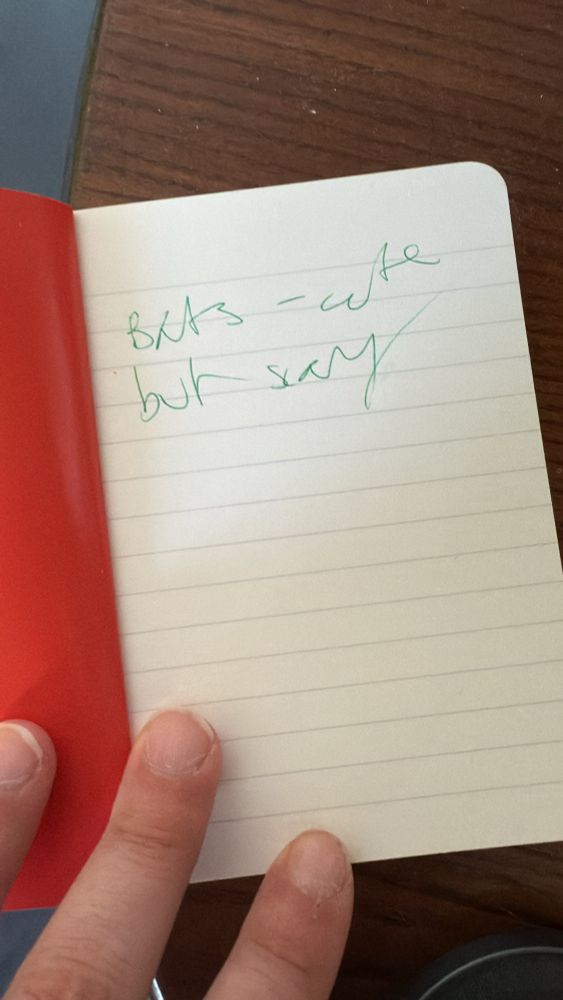 Bats - cute
but scary